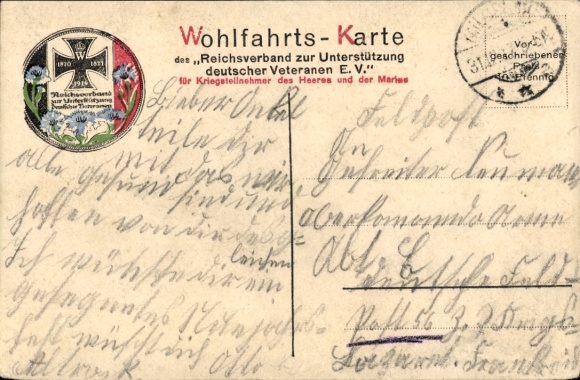 Wohlfahrts-Karte
des „Reichsverband zur Unterstützung
deutscher Veteranen E. V."
für Kriegsteilnehmer des Heeres und der Marine
1870 1871
1914
Reichsverband
zur Unterstützung
deutscher Veteranen
Vor-
geschriebener
Preis
Pfennig
Lieber Onkel
teile dir
mit das wir
alle gesund sind und
hoffen von dir des
gleichen
Ich wünsche dir ein
gesegnetes
fest wünscht dich Otto
Feldpost
An
Gefreiter Neumann
Oberkomando Armee
Abt.
deutsche Feld-
Post 56
Lazaret. Frankreich